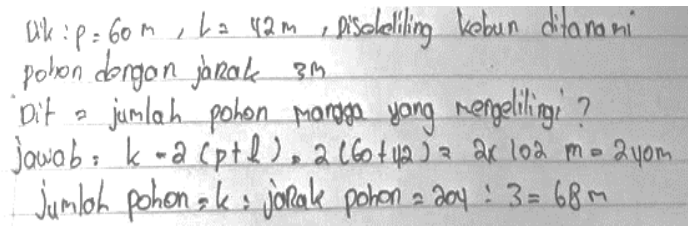 Dik : p = 60 m , l = 42 m , Disekeliling kebun ditanami
pohon dengan jarak 3m
Dit = jumlah pohon mangga yang mengelilingi ?
jawab = k = 2 (p+l) = 2 (60+42) = 2x 102 m = 240m
jumlah pohon = k : jarak pohon = 204 : 3 = 68 m